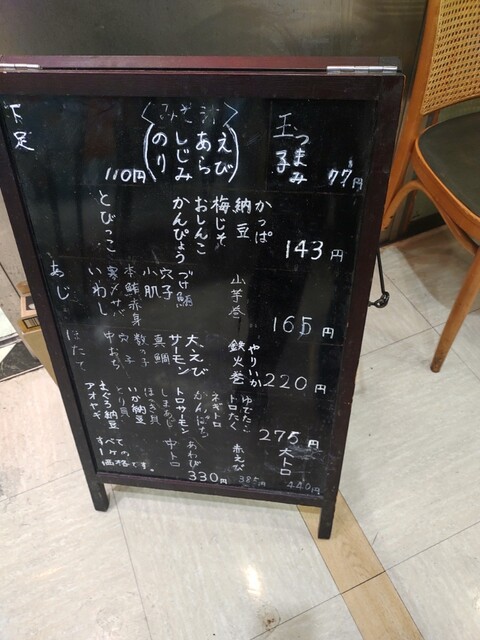 玉子
つまみ
77円
〈みそ汁〉
えび
あら
しじみ
のり
110円
下足
かっぱ
納豆
梅じそ
おしんこ
かんぴょう
とびっこ
143円
山芋巻
づけ鮪
穴子
小肌
本鮪赤身
寒〆サバ
いわし
あじ
165円
やりいか
鉄火巻
大えび
サーモン
真鯛
数の子
穴子
中おち
ほたて
220円
ゆでたこ
トロたく
ネギトロ
かんぱち
トロサーモン
しまあじ
ほっき貝
とり貝
いか納豆
まぐろ納豆
アオヤギ
275円
大トロ
赤えび
あわび
中トロ
330円
385円
440円
すべて
1ケの
価格です。